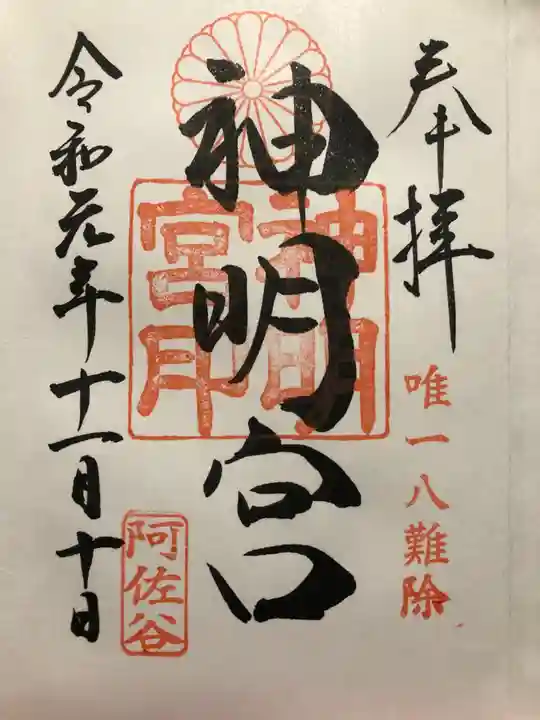 奉拝
唯一八難除
神明宮
神明
宮印
令和元年十一月十日
阿佐谷